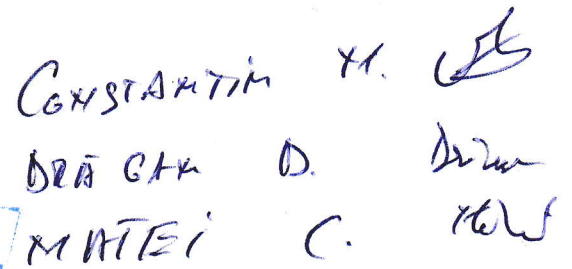 CONSTANTIN M.
DRĂGAN D.
MATEI C.